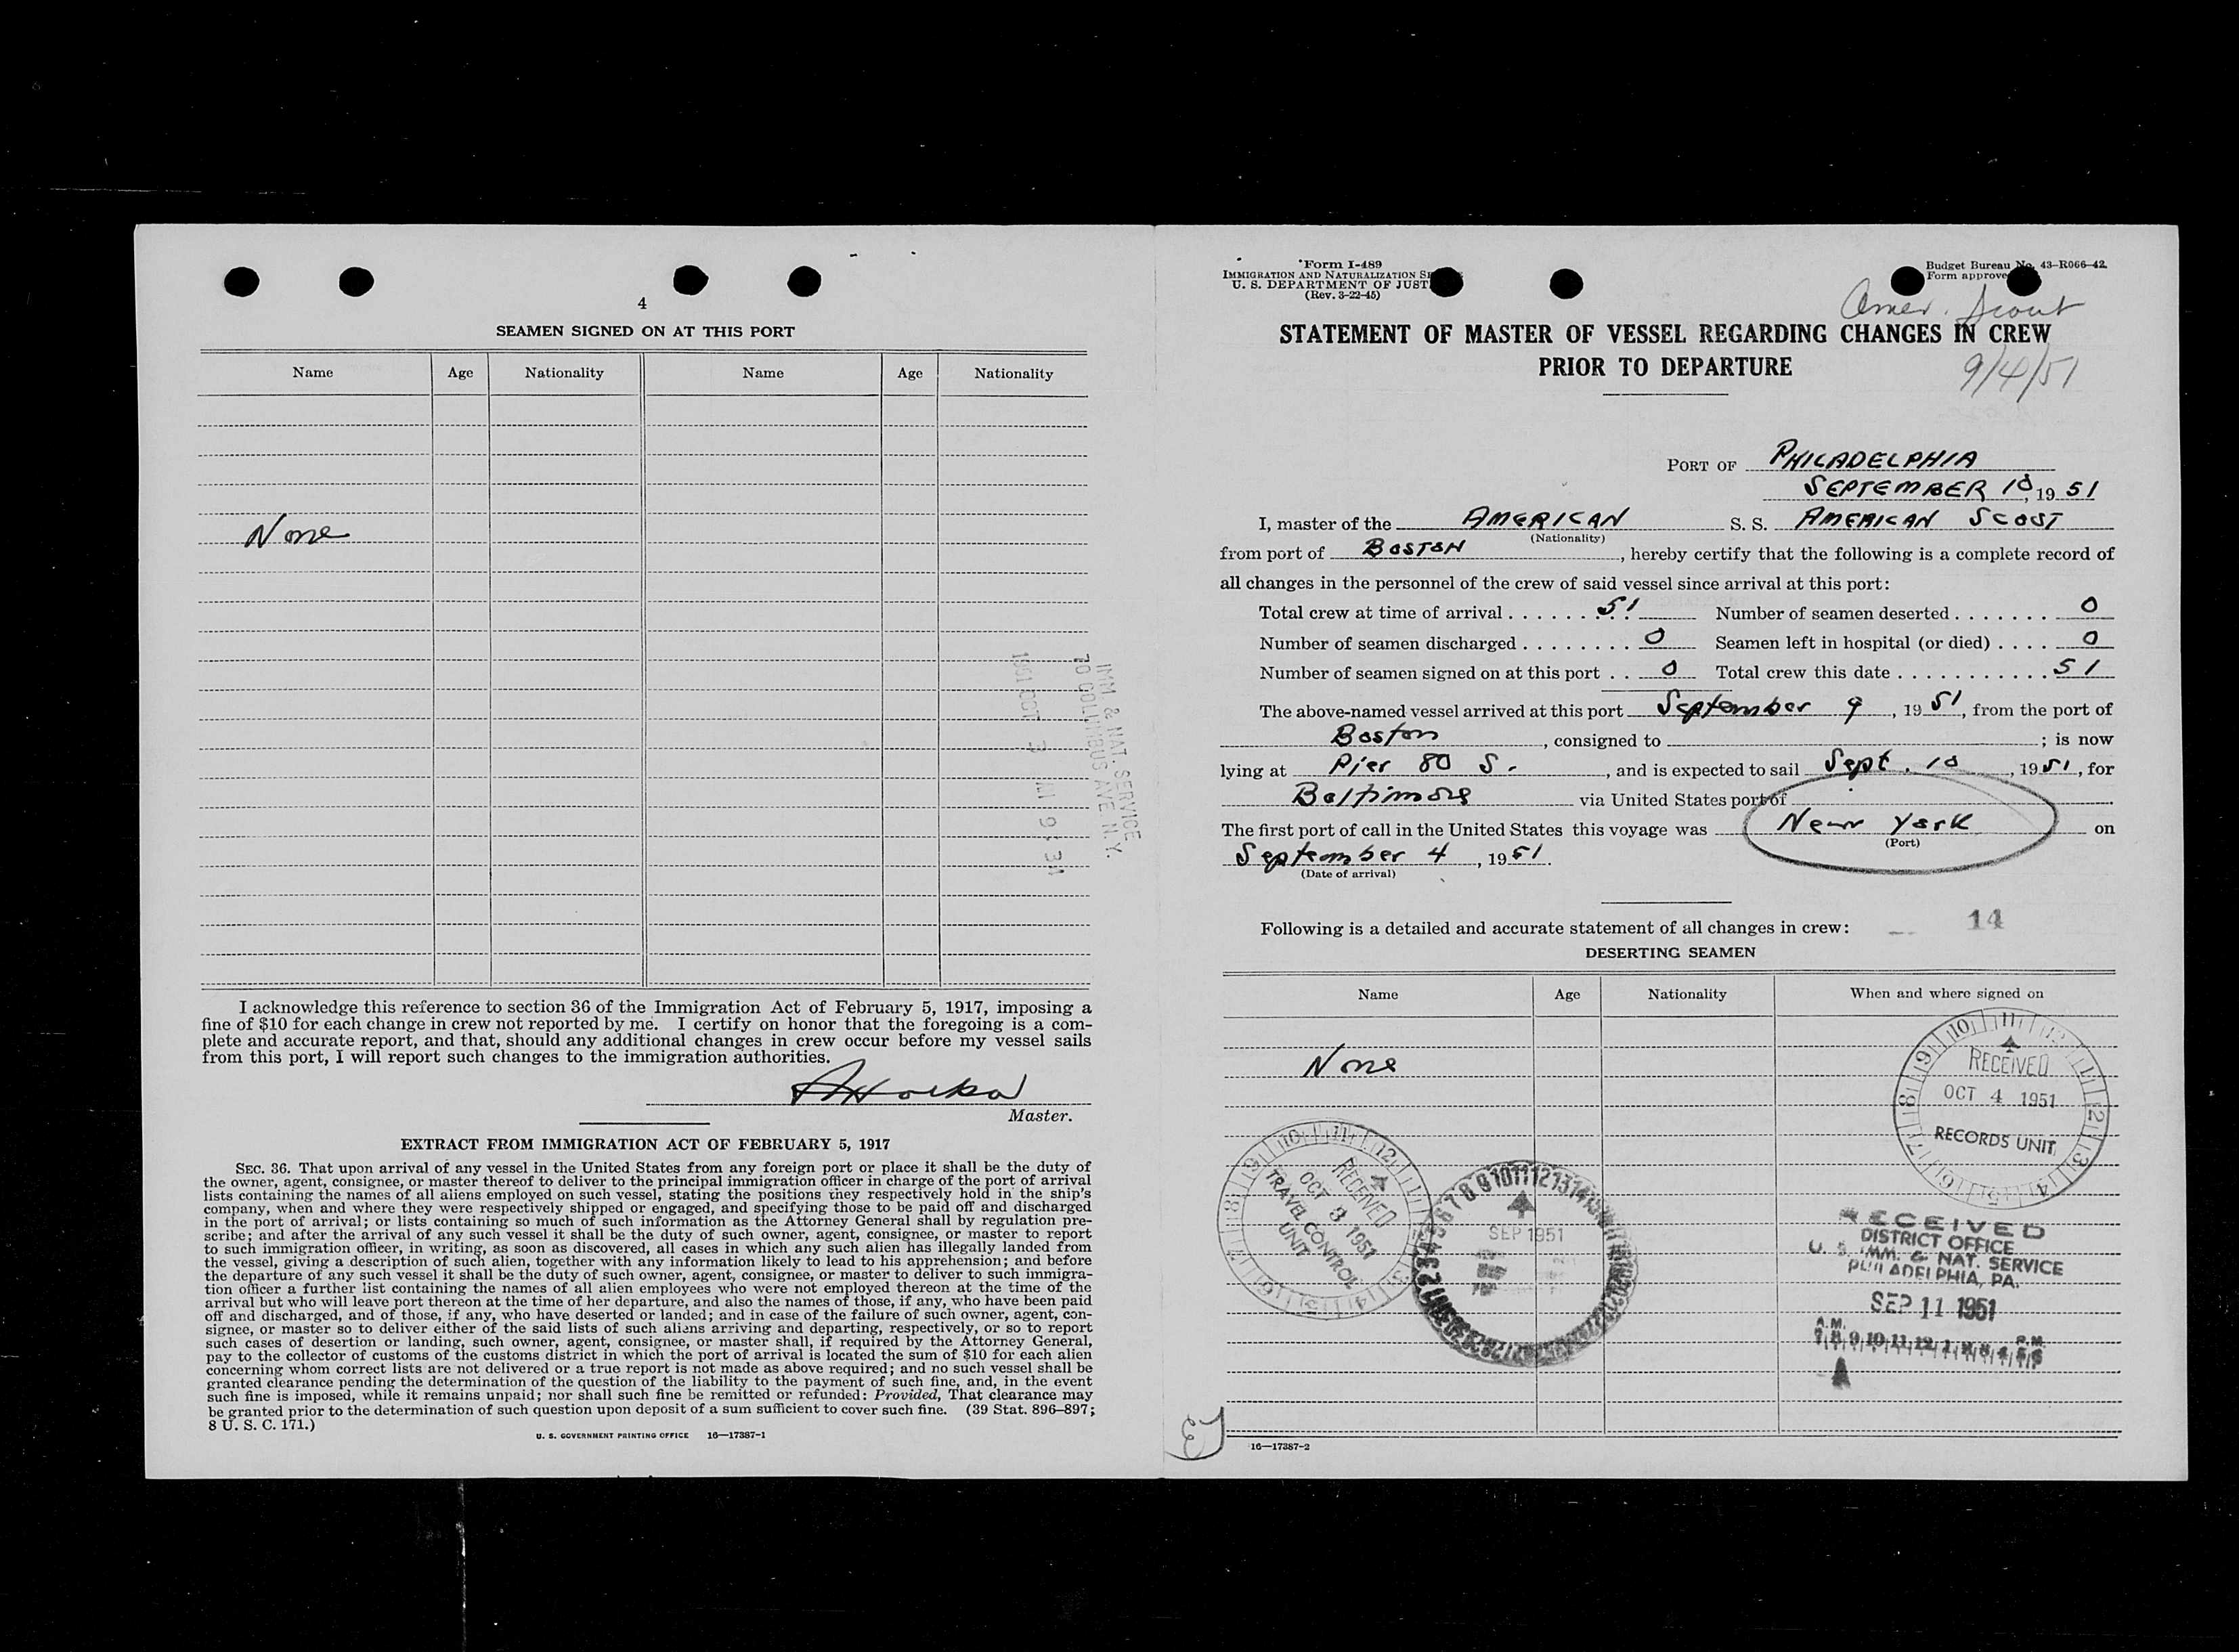 4
SEAMEN SIGNED ON AT THIS PORT
Name Age Nationality Name Age Nationality
None
IMM. & NAT. SERVICE
70 COLUMBUS AVE. N. Y.
1951 OCT 3
I acknowledge this reference to section 36 of the Immigration Act of February 5, 1917, imposing a
fine of $10 for each change in crew not reported by me. I certify on honor that the foregoing is a com-
plete and accurate report, and that, should any additional changes in crew occur before my vessel sails
from this port, I will report such changes to the immigration authorities.
Master.
EXTRACT FROM IMMIGRATION ACT OF FEBRUARY 5, 1917
SEC. 36. That upon arrival of any vessel in the United States from any foreign port or place it shall be the duty of
the owner, agent, consignee, or master thereof to deliver to the principal immigration officer in charge of the port of arrival
lists containing the names of all aliens employed on such vessel, stating the positions they respectively hold in the ship's
company, when and where they were respectively shipped or engaged, and specifying those to be paid off and discharged
in the port of arrival; or lists containing so much of such information as the Attorney General shall by regulation pre-
scribe; and after the arrival of any such vessel it shall be the duty of such owner, agent, consignee, or master to report
to such immigration officer, in writing, as soon as discovered, all cases in which any such alien has illegally landed from
the vessel, giving a description of such alien, together with any information likely to lead to his apprehension; and before
the departure of any such vessel it shall be the duty of such owner, agent, consignee, or master to deliver to such immigra-
tion officer a further list containing the names of all alien employees who were not employed thereon at the time of the
arrival but who will leave port thereon at the time of her departure, and also the names of those, if any, who have been paid
off and discharged, and of those, if any, who have deserted or landed; and in case of the failure of such owner, agent, con-
signee, or master so to deliver either of the said lists of such aliens arriving and departing, respectively, or so to report
such cases of desertion or landing, such owner, agent, consignee, or master shall, if required by the Attorney General,
pay to the collector of customs of the customs district in which the port of arrival is located the sum of $10 for each alien
concerning whom correct lists are not delivered or a true report is not made as above required; and no such vessel shall be
granted clearance pending the determination of the question of the liability to the payment of such fine, and, in the event
such fine is imposed, while it remains unpaid; nor shall such fine be remitted or refunded: Provided, That clearance may
be granted prior to the determination of such question upon deposit of a sum sufficient to cover such fine. (39 Stat. 896–897;
8 U. S. C. 171.)
U. S. GOVERNMENT PRINTING OFFICE 16—17387-1
Form I-489
IMMIGRATION AND NATURALIZATION
U. S. DEPARTMENT OF JUST
(Rev. 3-22-45)
Budget Bureau No. 43–R066–42.
Form approve
Amer. Scout
STATEMENT OF MASTER OF VESSEL REGARDING CHANGES IN CREW
PRIOR TO DEPARTURE
9/4/51
PORT OF PHILADELPHIA
SEPTEMBER 10, 19 51
I, master of the AMERICAN S. S. AMERICAN SCOUT
(Nationality)
from port of BOSTON, hereby certify that the following is a complete record of
all changes in the personnel of the crew of said vessel since arrival at this port:
Total crew at time of arrival 51 Number of seamen deserted 0
Number of seamen discharged 0 Seamen left in hospital (or died) 0
Number of seamen signed on at this port 0 Total crew this date 51
The above-named vessel arrived at this port September 9, 19 51, from the port of
Boston, consigned to ; is now
lying at Pier 80 S., and is expected to sail Sept. 10, 19 51, for
Baltimore via United States port of
The first port of call in the United States this voyage was New York on
(Port)
September 4, 19 51.
(Date of arrival)
Following is a detailed and accurate statement of all changes in crew:
14
DESERTING SEAMEN
Name Age Nationality When and where signed on
None
RECEIVED
OCT 4 1951
RECORDS UNIT
RECEIVED
OCT 3 1951
TRAVEL CONTROL
UNIT
SEP 1951
RECEIVED
DISTRICT OFFICE
U. S. IMM. & NAT. SERVICE
PHILADELPHIA, PA.
SEP 11 1951
A.M. P.M.
7 8 9 10 11 12 1 2 3 4 5 6
16—17387-2